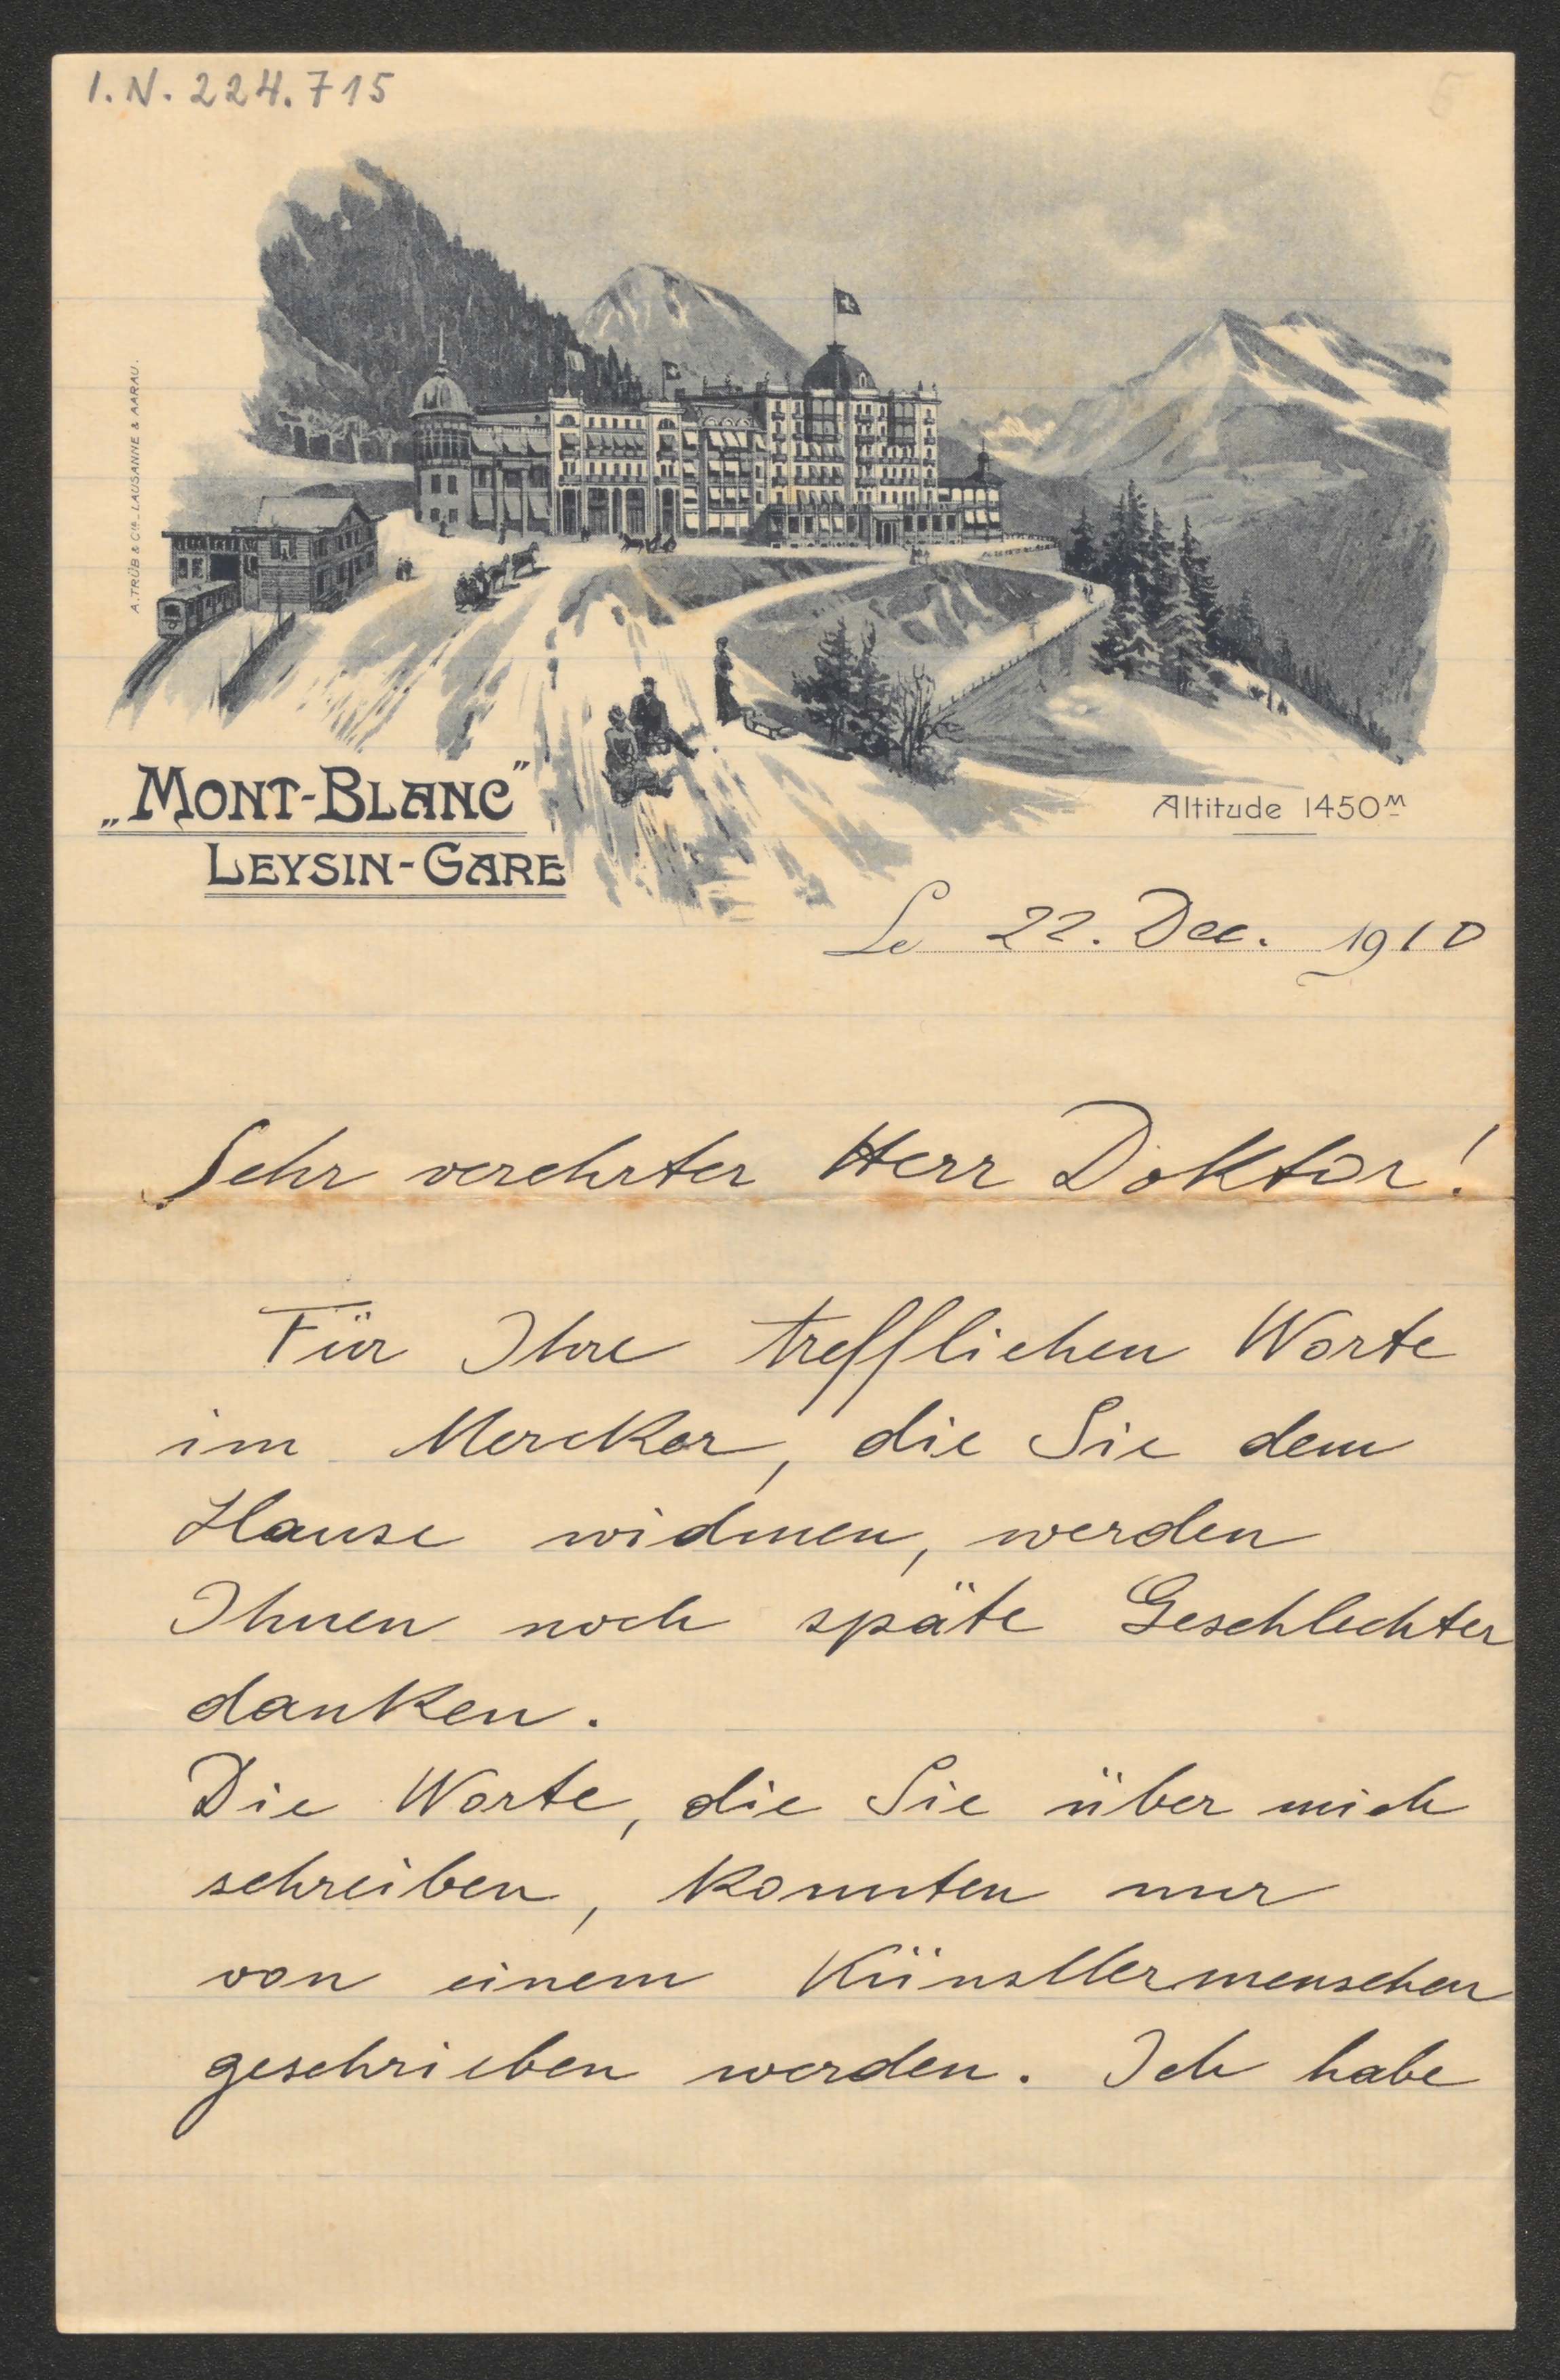 I.N. 224.715
A. TRÜB & Cie. LAUSANNE & AARAU.
„MONT-BLANC"
LEYSIN-GARE
Altitude 1450 M
Le 22. Dec. 1910
Sehr verehrter Herr Doktor!
Für Ihre trefflichen Worte
im Mercker, die Sie dem
Hause widmen, werden
Ihnen noch späte Geschlechter
danken.
Die Worte, die Sie über mich
schreiben, konnten nur
von einem Künstlermenschen
geschrieben werden. Ich habe